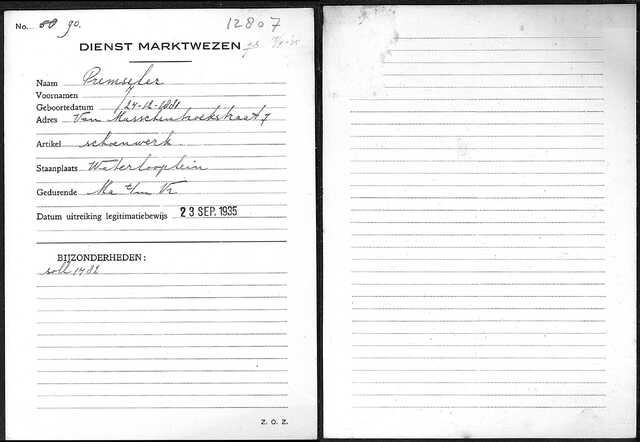 No. 80 90. 12807
DIENST MARKTWEZEN
Naam Premseler
Voornamen
Geboortedatum 24-12-1881
Adres Van Musschenbroekstraat 7
Artikel schoenwerk
Staanplaats Waterlooplein
Gedurende Ma t/m Vr
Datum uitreiking legitimatiebewijs 23 SEP. 1935
BIJZONDERHEDEN:
soll 1482
Z. O. Z.